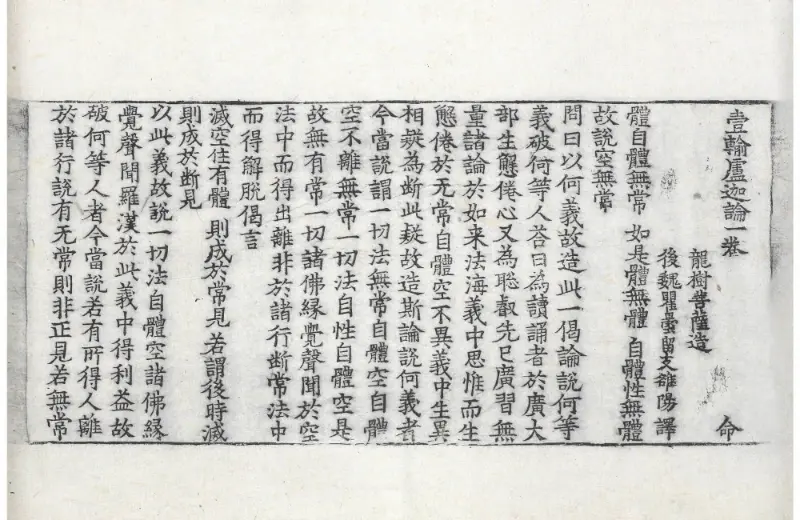 壹輸盧迦論一卷 命
龍樹菩薩造
後魏瞿曇留支雒陽譯
體自體無常 如是體無體 自體性無體
故說空無常
問曰以何義故造此一偈論說何等
義破何等人荅曰為讀誦者於廣大
部生懈倦心又為聦叡先已廣習無
量諸論於如来法海義中思惟而生
懈倦於无常自體空不異義中生異
相疑為断此疑故造斯論說何義者
今當說謂一切法無常自體空自體
空不離無常一切法自性自體空是
故無有常一切諸佛緣覺聲聞於空
法中而得出離非於諸行断常法中
而得解脫偈言
滅空住有體 則成於常見若謂後時滅
則成於断見
以此義故說一切法自體空諸佛緣
覺聲聞羅漢於此義中得利益故
破何等人者今當說若有所得人離
於諸行說有无常則非正見若無常